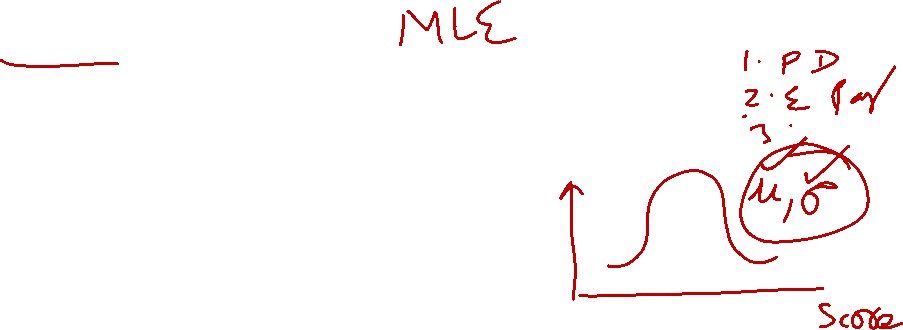 MLE
1. PD
2. E Par
3.
μ, σ
Score